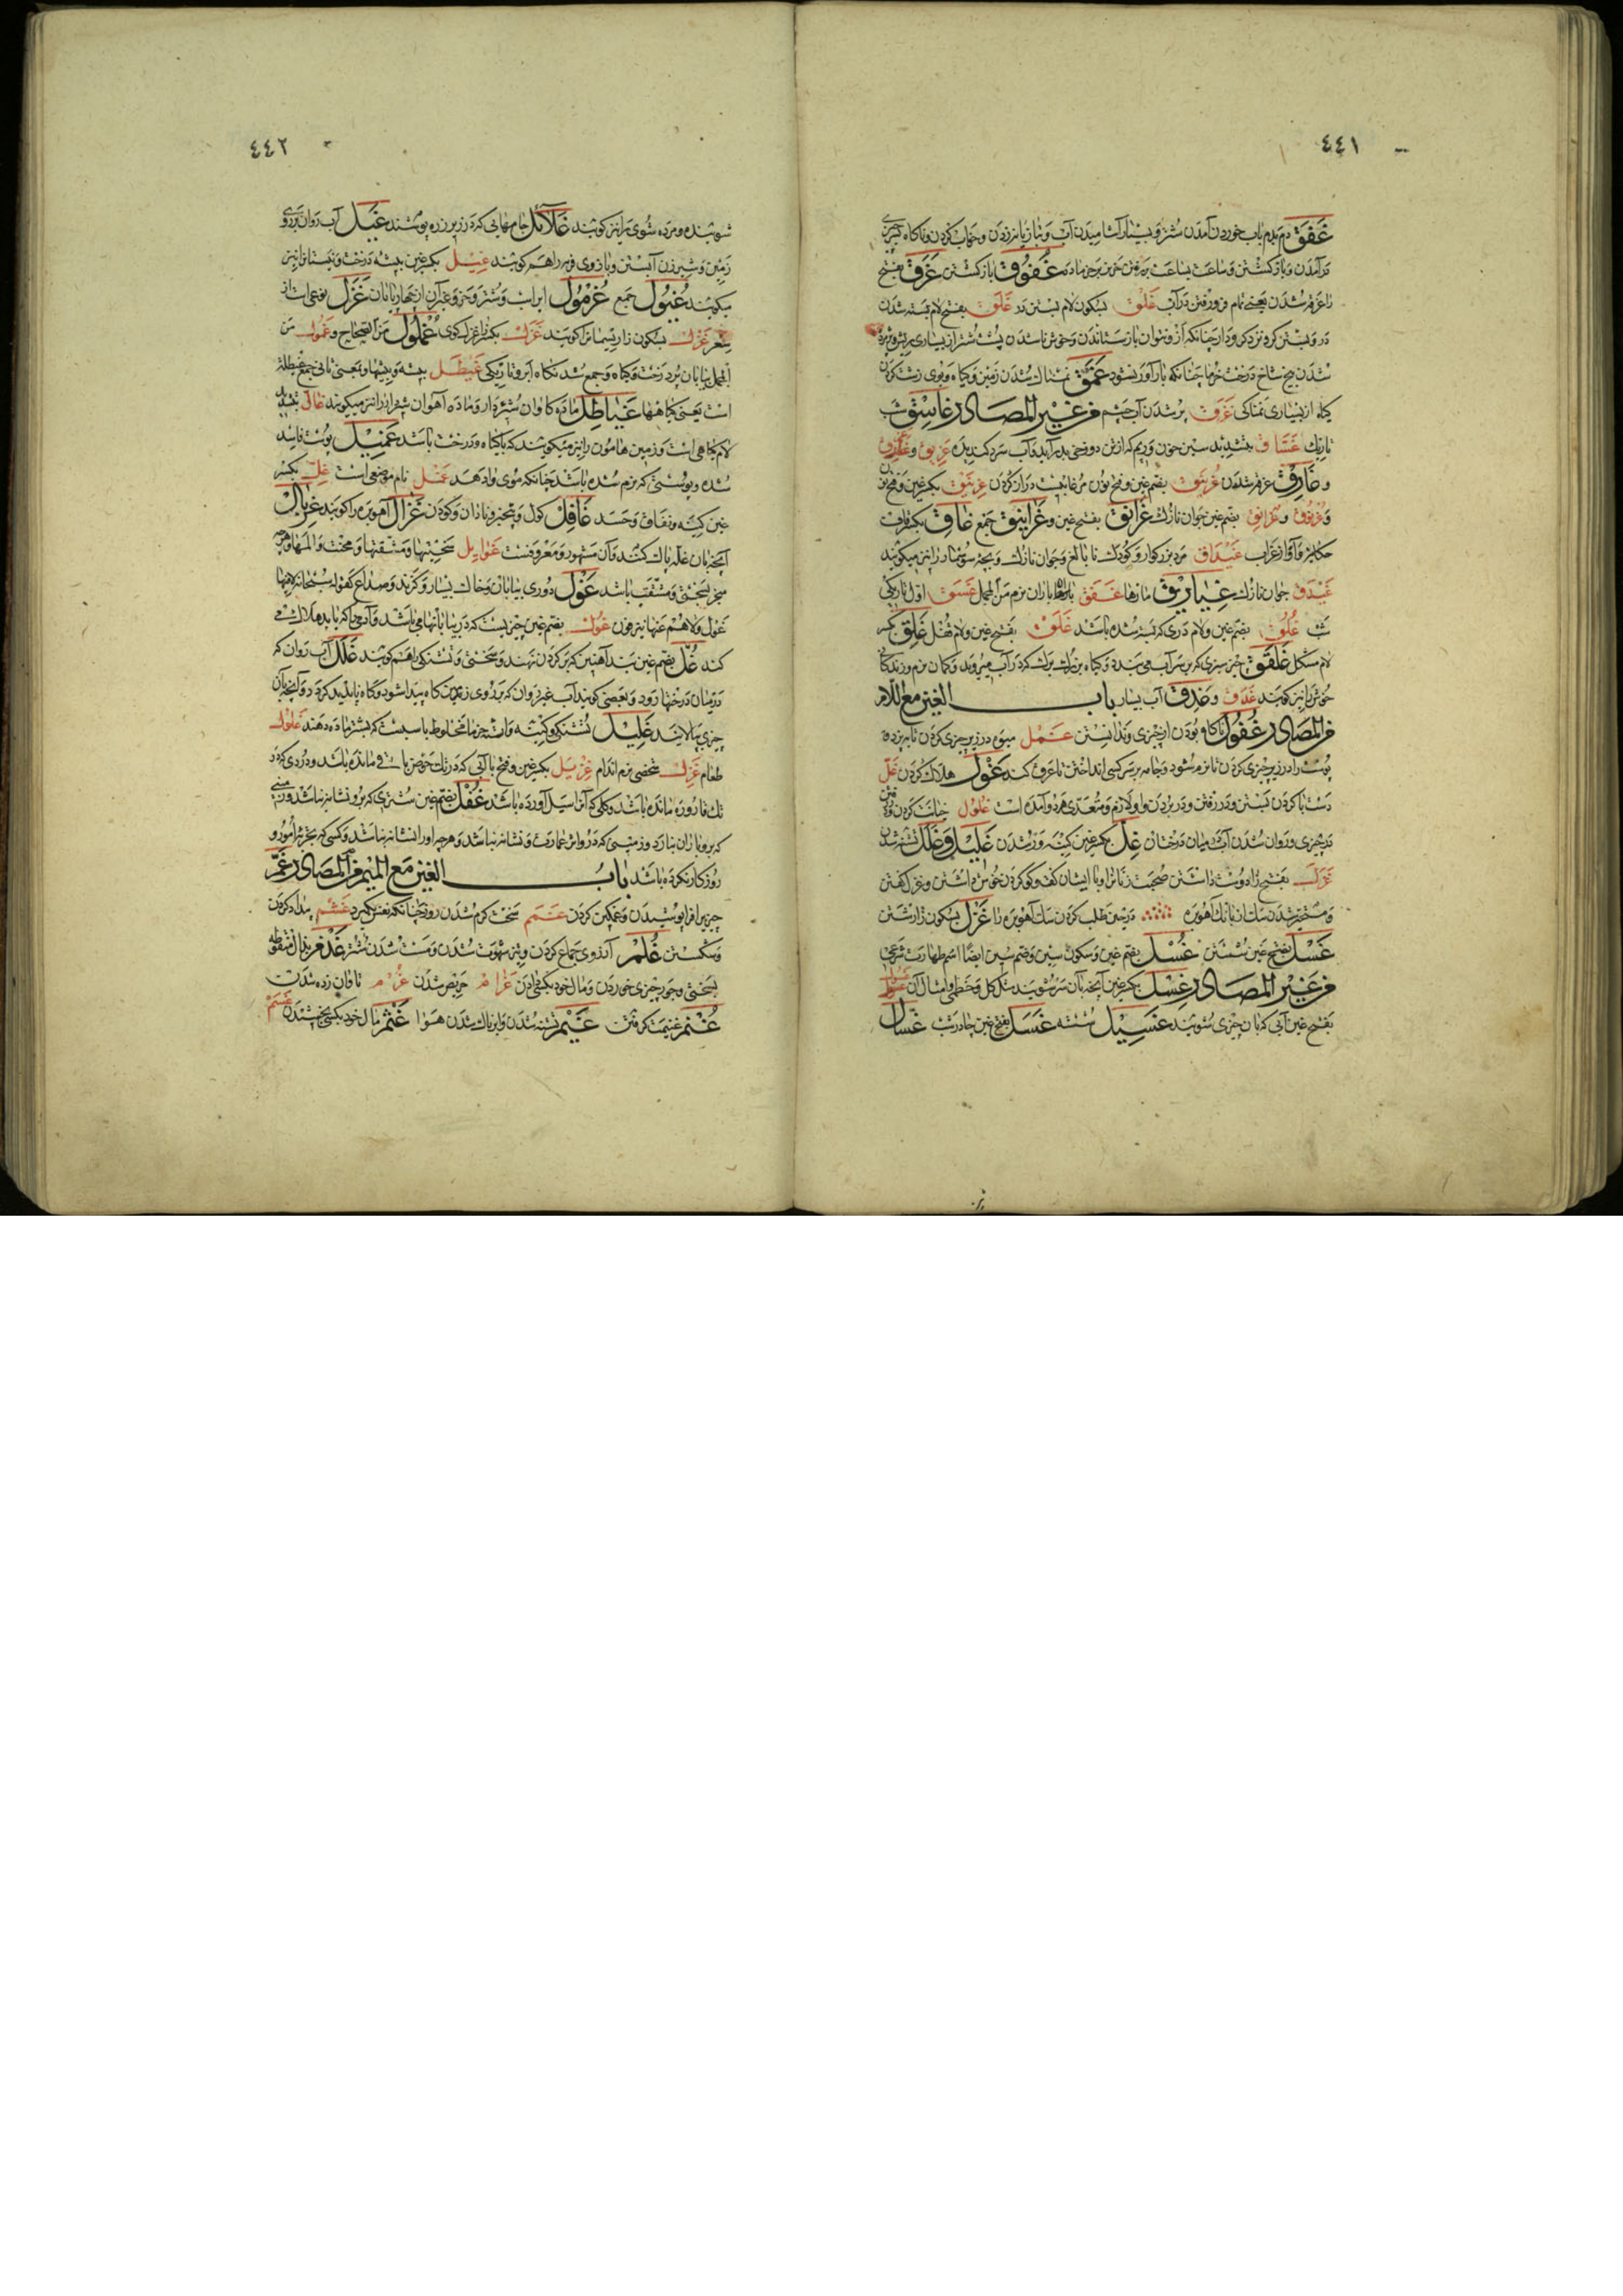 ٤٤١
غَفَق دم بدم بآب خوردن آمدن شتر و بسیار آشامیدن آب و بتازیانه زدن و خواب کردن و ناکاه
در آمدن و باز کشتن و ساعت بساعت بر رفتن خر نر بر خر ماده غُفُوق باز کشتن غَرَق بفتح
را غرقه شدن یعنی تمام فرو رفتن در آب غَلْق بسکون لام بستن در غَلَق بفتح لام بسته شدن
در و بستن کرو نزد کرودار چنانکه از و نتوان باز ستاندن و خوش ناشدن پشت شتر از بسیاری ریش
شدن بیخ شاخ درخت خرما چنانکه بار آور نشود غَمَق نمناک شدن زمین و کیاه و بوی زشت کردن
کیاه از بسیاری نمناکی غَرَق پر شدن آب چشم فی غیر المصادر غاسِق شب
تاریک غَسّاق بتشدید سین خون و ریم که از تن دوزخی بدر آید و آب سرد کندیده غریق و
و غارِق غرقه شدن غُرنَیق بضم غین و فتح نون مرغابیست دراز کردن غِرنَیق بکسر غین و فتح نون
و غرنوق و غرانق بضم غین جوان نازک غَرانِق بفتح غین و غَرانیق جمع غاق بکسر قاف
حکایة آواز غراب غَیداق مرد بزرکوار و کودک نا بالغ و جوان نازک و بچه سوسمار را نیز میکویند
غَیدَق جوان نازک غیاریق مارها غَفَق باران نرم من المجمل غَسَق اول تاریکی
شب غُلُق بضم غین و لام دری که بسته شده باشد غَلَق بفتح غین و لام قفل غَلِق بکسر
لام مشکل غَلفَق چیز سبزی که بر سر آب می بندد و کیاه بزرک برک که در آب میروید و کمان نرم و زندکانی
خوش را نیز کویند غَدَق و غَیدَق آب بسیار باب الغین مع اللام
فی المصادر غُفُول ناکاه بودن از چیزی و ندانستن غَمْل میوه در زیر چیزی کردن تا بپزد و
پوست را در زیر چیزی کردن تا نرم شود و جامه بر سر کسی انداختن تا عرق کند غَوْل هلاک کردن غَلّ
دست با کردن بستن و در رفتن و در بردن و او لازم و متعدی هر دو آمده است غلول خیانت کردن و
در چیزی و روان شدن آب در میان درختان غِلّ بکسر غین کینه ور شدن غَلیل و غَلَل تشنه شدن
غَزَل بفتح زا دوست داشتن صحبت زنان را و با ایشان کفت و کو کردن خوش داشتن و غزل کفتن
و متحیر شدن سک از بانک آهو بره در حین طلب کردن سک آهو بره را غَزْل بسکون زا رشتن
غَسْل بفتح غین شستن غُسْل بضم غین و سکون سین و ضم سین ایضا اسم طهارت شرعی
فی غیر المصادر غِسْل بکسر غین آنچه بآن سر شویند مثل کل و خطمی و امثال آن
بفتح غین آبی که بآن چیزی شویند غَسیل شسته غَسَل بفتح غین چادر شب غسّال
٤٤٢
شوینده و مرده شوی را نیز کویند غَلائِل جامهایی که در زیر زره پوشند غَیْل آب روان بر روی
زمین و شیر زن آبستن و بازوی فربه را هم کویند غِیْل بکسر غین بیشه درخت و نیستان را نیز
میکویند غُیُول جمع غُرمُول ایر اسب و شتر و خر و غیر آن از چهار پایان غَزَل نوعی است از
شعر غَزْل بسکون زا ریسمان را کویند غَزِل بکسر زا غزل کوی غُملُول من الصحاح و غُمول من
المجمل بیابان پر درخت و کیاه و جمع شدنکاه ابر و تاریکی غَیطَل بیشه و بیشها و بمعنی ثانی جمع غیطلة
است یعنی کیاهها غَیاطِل ماده کاوان شیر دار و ماده آهوان شیردار را نیز میکویند غالّ بتشدید
لام کیاهی است و زمین هامون را نیز میکویند که با کیاه و درخت باشد غَمیل پوست فاسد
شده و پوستی که نرم شده باشد چنانکه موی وا دهد غَمْل نام موضعی است غِلّ بکسر
غین کینه و نفاق و حسد غافِل کول و بیخبر و نادان و کودن غَزال آهو بره را کویند غِربال
آنچه بآن غله پاک کنند و آن مشهور و معروفست غَوایِل سختیها و مشقتها و محنت و المها و هر چه
منجر بسختی و مشقت باشد غَوْل دوری بیابان و خاک بسیار و کزند و صداع کقوله سبحانه لا فیها
غول و لا هم عنها ینزفون غُول بضم غین چیزیست که در بیابانها می باشد و آدمی را که یابد هلاک می
کند غُلّ بضم غین بند آهنین که بر کردن نهند و سختی و تشنکی را هم کویند غَلَل آب روان که
در میان درختها رود و بعضی کویند آب غیر روان که بر روی زمین کاه پیدا شود و کاه ناپدید کردد و آنچه بآن
چیزی پالایند غَلیل تشنکی و کینه و است خرما مخلوط با سبست که بشتر ماده دهند غَلول
طعام غَزِل شخصی نرم اندام غِریَل بکسر غین و فتح یا آبی که در تک حوض باقی مانده باشد و دردی که در
تک قاروره مانده باشد و کلی که آنرا سیل آورده باشد غُفْل بضم غین شتری که بر و نشانه نباشد و زمینی
که برو باران نبارد و زمینی که در و اثر عمارت و نشانه نباشد و هر چه او را نشانه نباشد و کسی که تجربه امور و
روزکار نکرده باشد باب الغین مع المیم فی المصادر غَمّ
چیزی را فرا پوشیدن و غمکین کردن غَمَم سخت کرم شدن روز چنانکه نفس بکیرد غَشْم بیداد کردن
و شکستن غُلْم آرزوی جماع کردن و تیز شهوت شدن و مست شدن شتر غَذم بذال منقوطه
بسختی و جور چیزی خوردن و مال خود بکسی دادن غرام حریص شدن غُرْم تاوان زده شدن
غُنْم غنیمت کرفتن غَیْم تشنه شدن و ابر ناک شدن هوا غَثْم مال خود بکسی بخشیدن